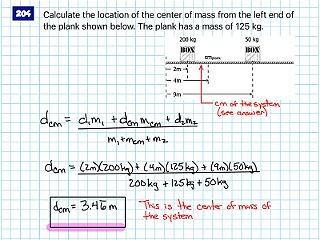 204 Calculate the location of the center of mass from the left end of
the plank shown below. The plank has a mass of 125 kg.
200 kg 50 kg
BOX BOX
cm plank
2m
4m
9m
cm of the system
(see answer)
dcm = d₁m₁ + dcm mcm + d₂m₂
m₁+mcm+m₂
dcm = (2m)(200kg) + (4m)(125kg) + (9m)(50kg)
200kg + 125kg + 50kg
dcm = 3.46m This is the center of mass of
the system